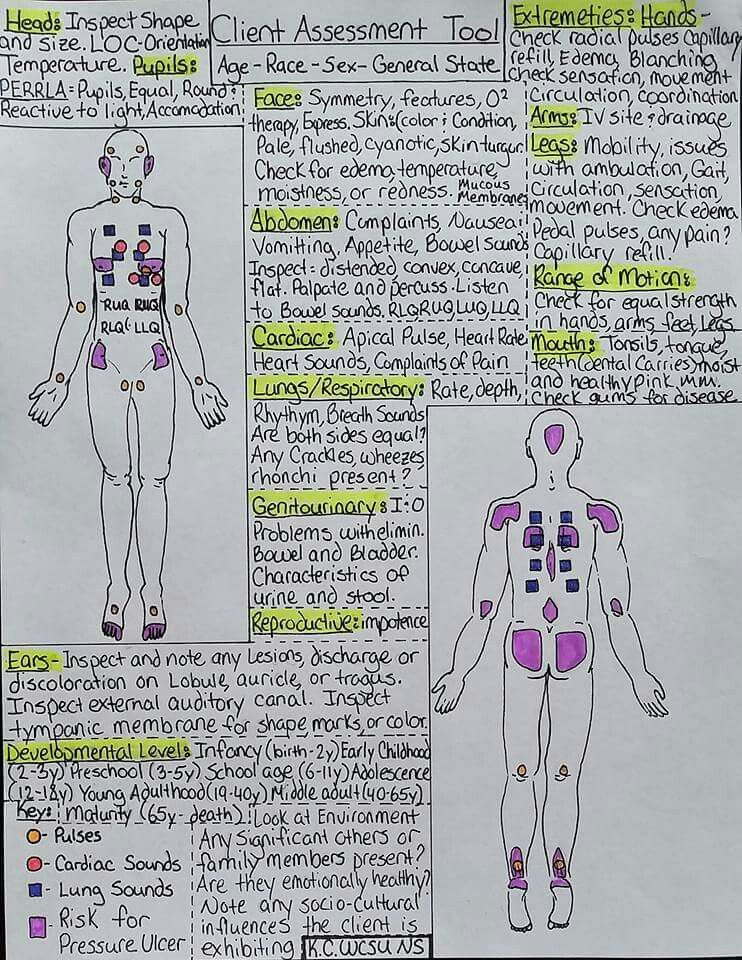 Head: Inspect Shape
and Size. LOC-Orientation
Temperature. Pupils:
PERRLA=Pupils, Equal, Round,
Reactive to light, Accomadation
Client Assessment Tool
Age-Race-Sex-General State
Extremeties: Hands-
Check radial pulses Capillary
refill, Edema, Blanching
Check sensation, movement
Circulation, coordination
Arms: IV site & drainage
Legs: Mobility, issues
with ambulation, Gait,
Circulation, sensation,
movement. Check edema
Pedal pulses, any pain?
Capillary refill.
Range of Motion:
Check for equal strength
in hands, arms, feet, Legs
Mouth: Tonsils, tongue,
teeth(dental Carries) moist
and healthy pink m.m.
Check gums for disease
Face: Symmetry, features, O²
therapy, Express. Skin:(color & Condition,
Pale, flushed, cyanotic, skin turgur.
Check for edema, temperature,
moistness, or redness. Mucous
Membranes
Abdomen: Complaints, Nausea &
Vomitting, Appetite, Bowel Sounds
Inspect = distended, convex, concave,
flat. Palpate and percuss. Listen
to Bowel sounds. RLQ, RUQ, LUQ, LLQ
Cardiac: Apical Pulse, Heart Rate
Heart Sounds, Complaints of Pain
Lungs/Respiratory: Rate, depth,
Rhythym, Breath Sounds
Are both sides equal?
Any Crackles, wheezes,
rhonchi present?
Genitourinary: I:O
Problems with elimin.
Bowel and Bladder.
Characteristics of
urine and stool.
Reproductive: impotence
RUQ RUQ
RLQ LLQ
Ears- Inspect and note any Lesions, discharge or
discoloration on Lobule, auricle, or tragus.
Inspect external auditory canal. Inspect
tympanic membrane for shape, marks, or color.
Developmental Level: Infancy (birth-2y) Early Childhood
(2-3y) Preschool (3-5y) School age (6-11y) Adolescence
(12-18y) Young Adulthood (19-40y) Middle adult (40-65y)
Maturity (65y-death)
Key:
Pulses
Cardiac Sounds
Lung Sounds
Risk for
Pressure Ulcer
Look at Environment
Any Significant others or
family members present?
Are they emotionally healthy?
Note any socio-cultural
influences the client is
exhibiting
K.C. WCSU NS